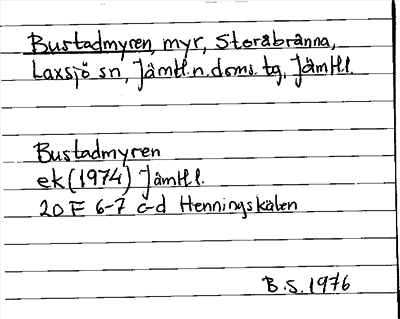 Bustadmyren, myr, Storåbränna,
Laxsjö sn, Jämtl. n. doms. tg, Jämtl l.
Bustadmyren
ek (1974) Jämtl l.
20 F 6-7 c-d Henningskälen
B.S. 1976